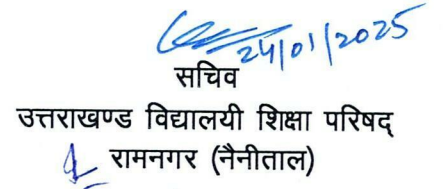 24/01/2025
सचिव
उत्तराखण्ड विद्यालयी शिक्षा परिषद्
रामनगर (नैनीताल)